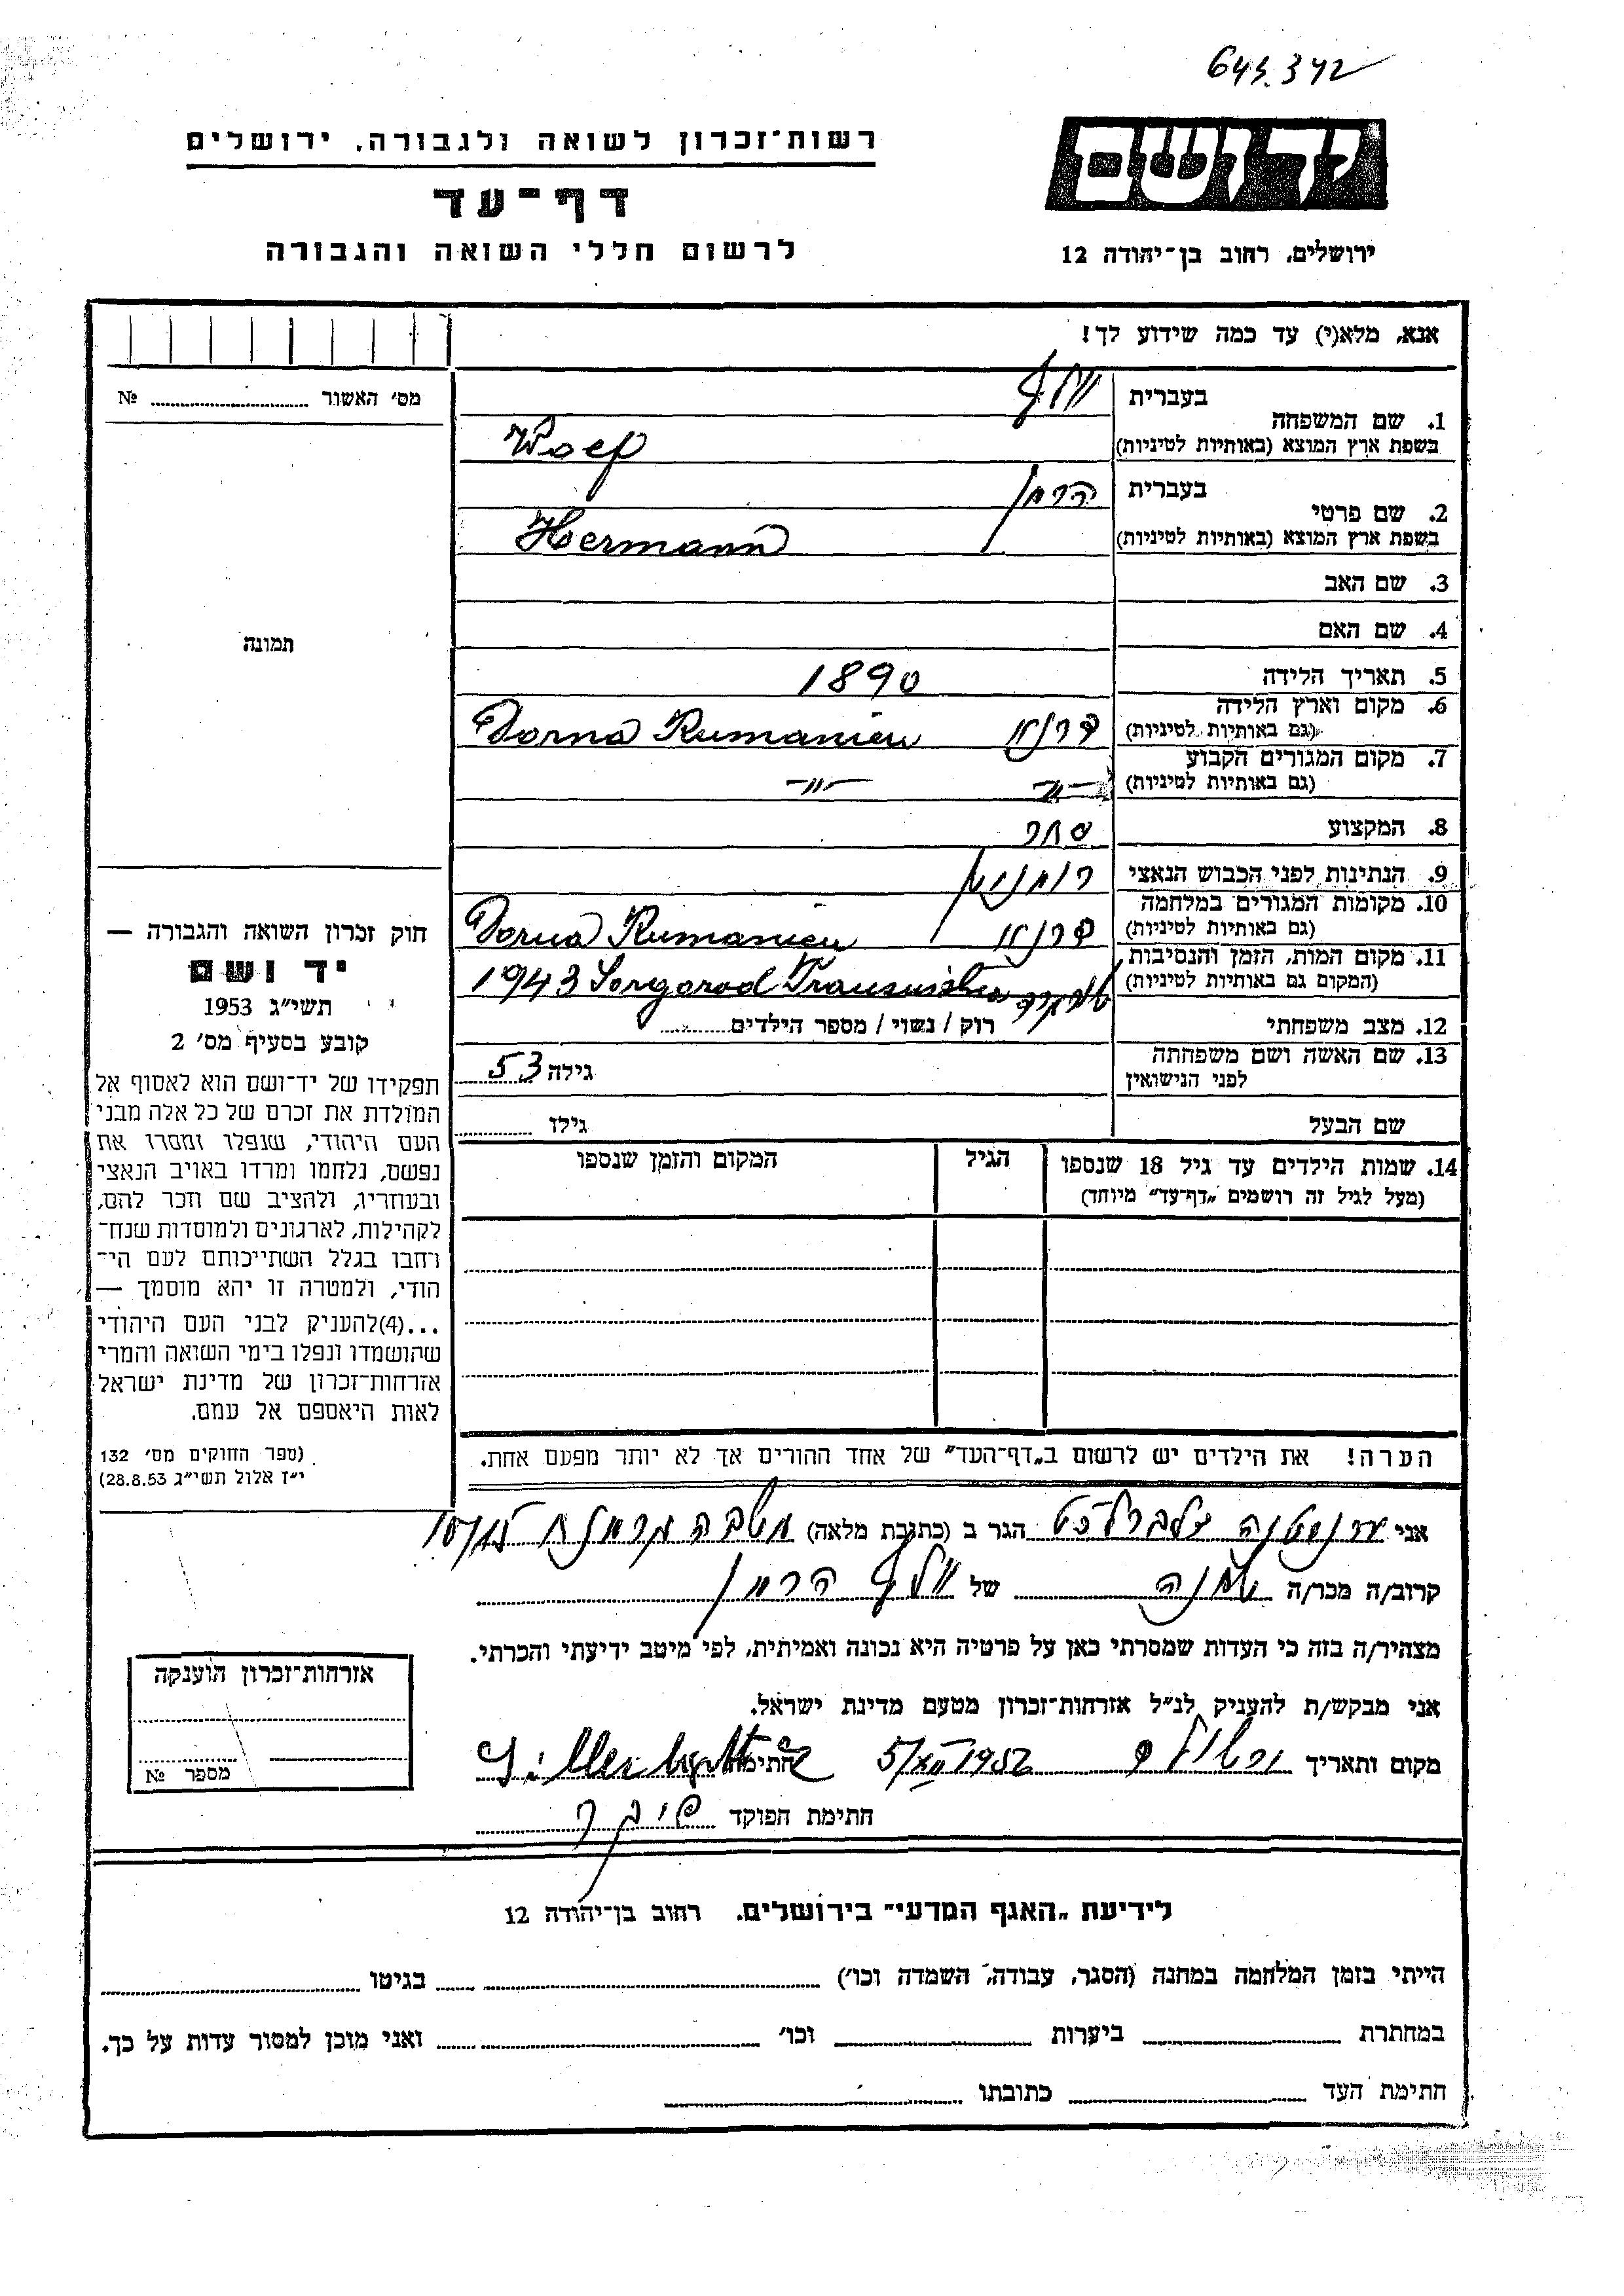 643.342
רשות־זכרון לשואה ולגבורה, ירושלים
דף־עד
לרשום חללי השואה והגבורה
ידושם
ירושלים, רחוב בן־יהודה 12
אנא, מלא(י) עד כמה שידוע לך!
מס׳ האשור № 
1. שם המשפחה בעברית וולף
בשפת ארץ המוצא (באותיות לטיניות) Wolf
2. שם פרטי בעברית הרמן
בשפת ארץ המוצא (באותיות לטיניות) Hermann
3. שם האב
4. שם האם
תמונה
5. תאריך הלידה 1890
6. מקום וארץ הלידה
(גם באותיות לטיניות) Dorna Rumanien
7. מקום המגורים הקבוע
(גם באותיות לטיניות) —"— —"—
8. המקצוע סוחר
9. הנתינות לפני הכבוש הנאצי
10. מקומות המגורים במלחמה
(גם באותיות לטיניות) Dorna Rumanien
11. מקום המות, הזמן והנסיבות
(המקום גם באותיות לטיניות) 1943
12. מצב משפחתי רוק / נשוי / מספר הילדים
13. שם האשה ושם משפחתה
לפני הנישואין גילה 53
שם הבעל גילו
14. שמות הילדים עד גיל 18 שנספו הגיל המקום והזמן שנספו
(מעל לגיל זה רושמים „דף־עד״ מיוחד)
חוק זכרון השואה והגבורה —
יד ושם
תשי״ג 1953
קובע בסעיף מס׳ 2
תפקידו של יד־ושם הוא לאסוף אל
המולדת את זכרם של כל אלה מבני
העם היהודי, שנפלו ומסרו את
נפשם, נלחמו ומרדו באויב הנאצי
ובעוזריו, ולהציב שם וזכר להם,
לקהילות, לארגונים ולמוסדות שנח־
רחבו בגלל השתייכותם לעם הי־
הודי, ולמטרה זו יהא מוסמך —
...(4)להעניק לבני העם היהודי
שהושמדו ונפלו בימי השואה והמרי
אזרחות־זכרון של מדינת ישראל
לאות היאספם אל עמם.
(ספר החוקים מס׳ 132
י״ז אלול תשי״ג 28.8.53)
הערה! את הילדים יש לרשום ב„דף־העד״ של אחד ההורים אך לא יותר מפעם אחת.
אני הגר ב (כתובת מלאה)
קרוב/ה מכר/ה של וולף הרמן
מצהיר/ה בזה כי העדות שמסרתי כאן על פרטיה היא נכונה ואמיתית, לפי מיטב ידיעתי והכרתי.
אני מבקש/ת להעניק לנ״ל אזרחות־זכרון מטעם מדינת ישראל.
מקום ותאריך חתימה
חתימת הפוקד
אזרחות־זכרון הוענקה
מספר №
לידיעת „האגף המדעי״ בירושלים, רחוב בן־יהודה 12
הייתי בזמן המלחמה במחנה (הסגר, עבודה, השמדה וכו׳) בגיטו
במחתרת ביערות וכו׳ ואני מוכן למסור עדות על כך.
חתימת העד כתובתו